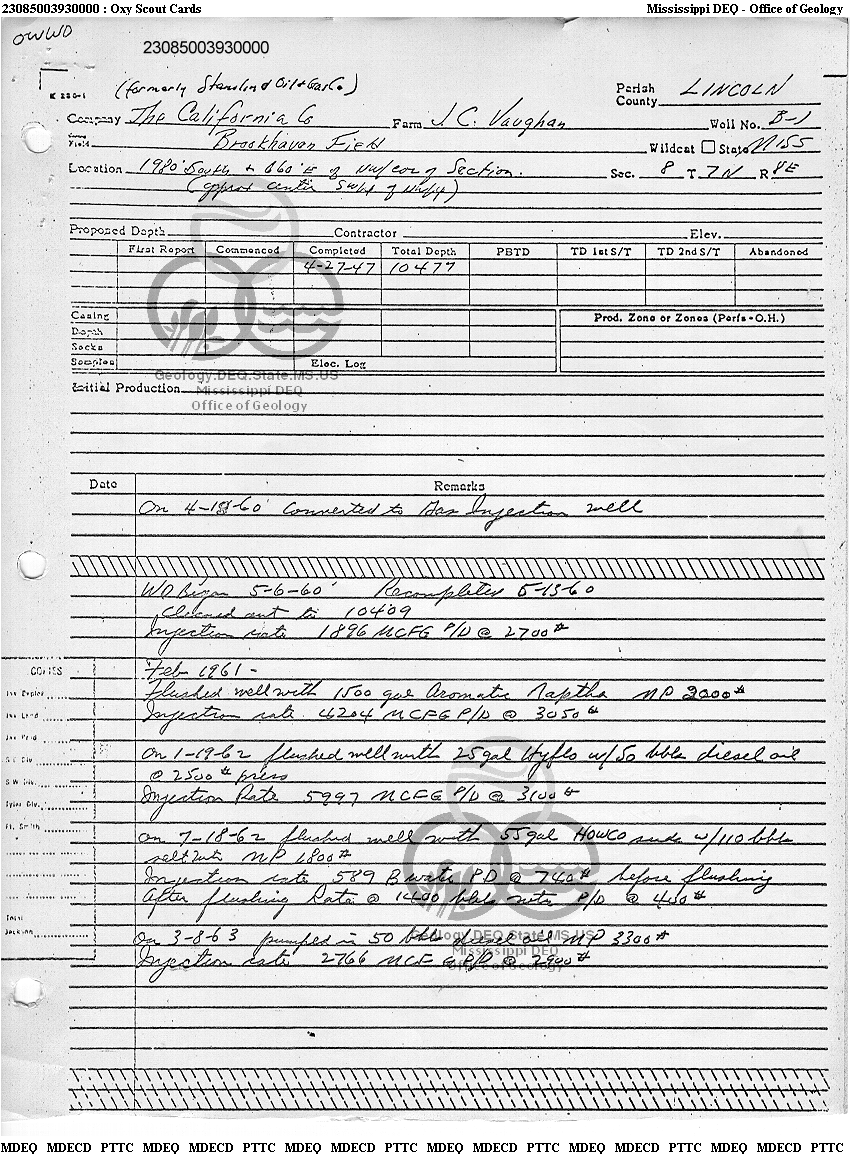 23085003930000 : Oxy Scout Cards Mississippi DEQ - Office of Geology
OWWO
23085003930000
(formerly Stanolind Oil & Gas Co)
Parish
County LINCOLN
Company The California Co Farm J. C. Vaughan Well No. B-1
Field Brookhaven Field Wildcat State Miss
Location 1980' South + 660' E of NW/cor of Section. Sec. 8 T. 7N R 8E
(approx center SW/4 of NW/4)
Proposed Depth Contractor Elev.
First Report Commenced Completed Total Depth PBTD TD 1st S/T TD 2nd S/T Abandoned
4-27-47 10477
Casing Prod. Zone or Zones (Perfs - O.H.)
Depth
Sacks
Samples Elec. Log
Geology.DEQ.State.MS.US
Initial Production
Mississippi DEQ
Office of Geology
Date Remarks
On 4-18-60 converted to Gas Injection well
WO Began 5-6-60 Recompleted 5-13-60
Cleaned out to 10409
Injection rate 1896 MCFG P/D @ 2700#
COPIES
Feb 1961 -
Flushed well with 1500 gal Aromatic Naptha MP 2000#
Injection rate 4204 MCFG P/D @ 3050#
On 1-19-62 flushed well with 25 gal Hyflo w/50 bbls diesel oil
@ 2500# press
Injection Rate 5997 MCFG P/D @ 3100#
Ft. Smith
On 7-18-62 flushed well with 55 gal HOWCO suds w/110 bbls
salt wtr MP 1800#
Injection rate 589 B water PD @ 740# before flushing
After flushing Rate @ 1400 bbls wtr P/D @ 400#
Total
Jackson
Geology.DEQ.State.MS.US
On 3-8-63 pumped in 50 bbls diesel oil MP 3300#
Mississippi DEQ
Injection rate 2766 MCF G P/D @ 2900#
Office of Geology
MDEQ MDECD PTTC MDEQ MDECD PTTC MDEQ MDECD PTTC MDEQ MDECD PTTC MDEQ MDECD PTTC MDEQ MDECD PTTC